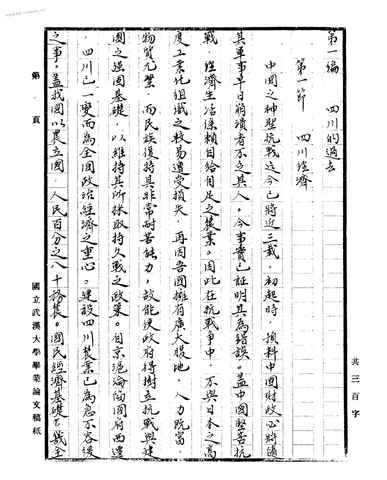 第一編　四川的過去
第一節　四川經濟
中國之神聖抗戰迄今已將近三載，初起時，預料中國財政必將隨
其軍事早日崩潰者不乏其人。今事實已証明其為錯誤。蓋中國堅苦抗
戰，經濟生活係賴自給自足之農業。因此在抗戰爭中，不與日本之高
度工業化組織之較易遭受損失，再因吾國擁有廣大腹地，人力既富，
物質尤豐，而民族復持具非常耐苦能力，故能使政府得樹立抗戰與建
國之強固基礎，以維持其所採取持久戰之政策。自京滬淪陷國府西遷
，四川已一變而為全國政治經濟之重心。建設四川農業已為急不容緩
之事。蓋我國以農立國，人民百分之八十務農。國民經濟基礎
全
第　頁
國立武漢大學畢業論文稿紙
共三百字